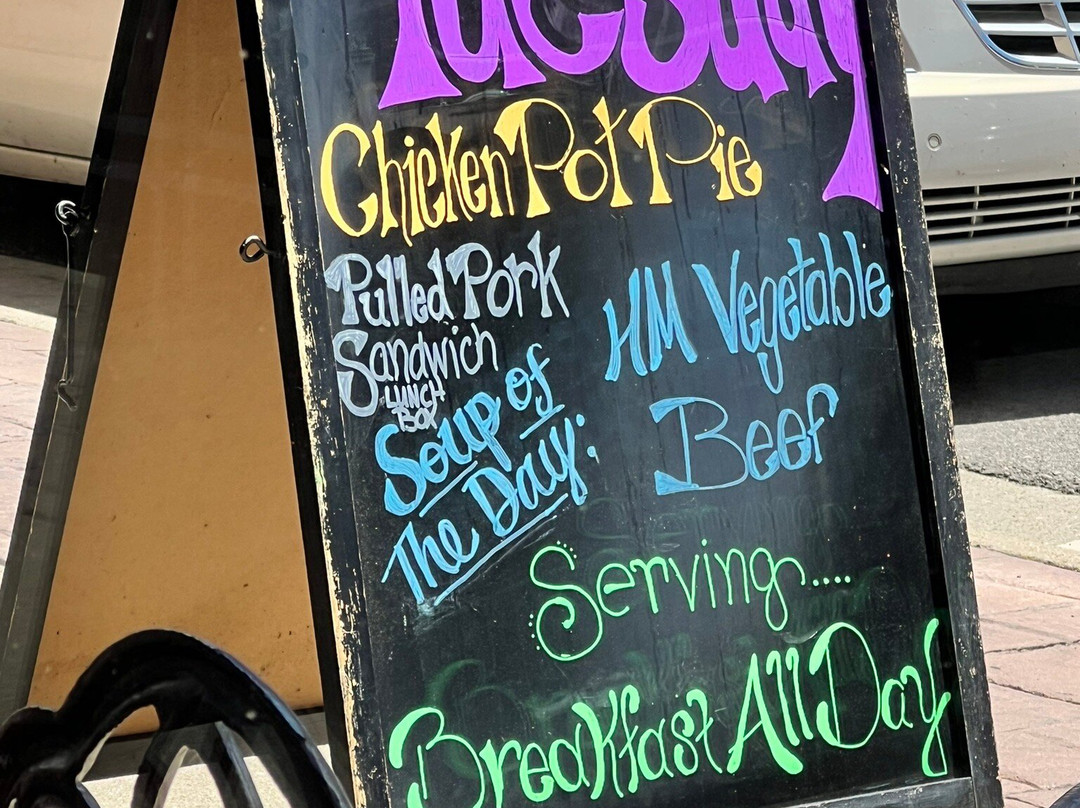 Tuesday
Chicken Pot Pie
Pulled Pork
Sandwich
LUNCH
BOX
Soup of
The Day:
HM Vegetable
Beef
Serving....
Breakfast All Day